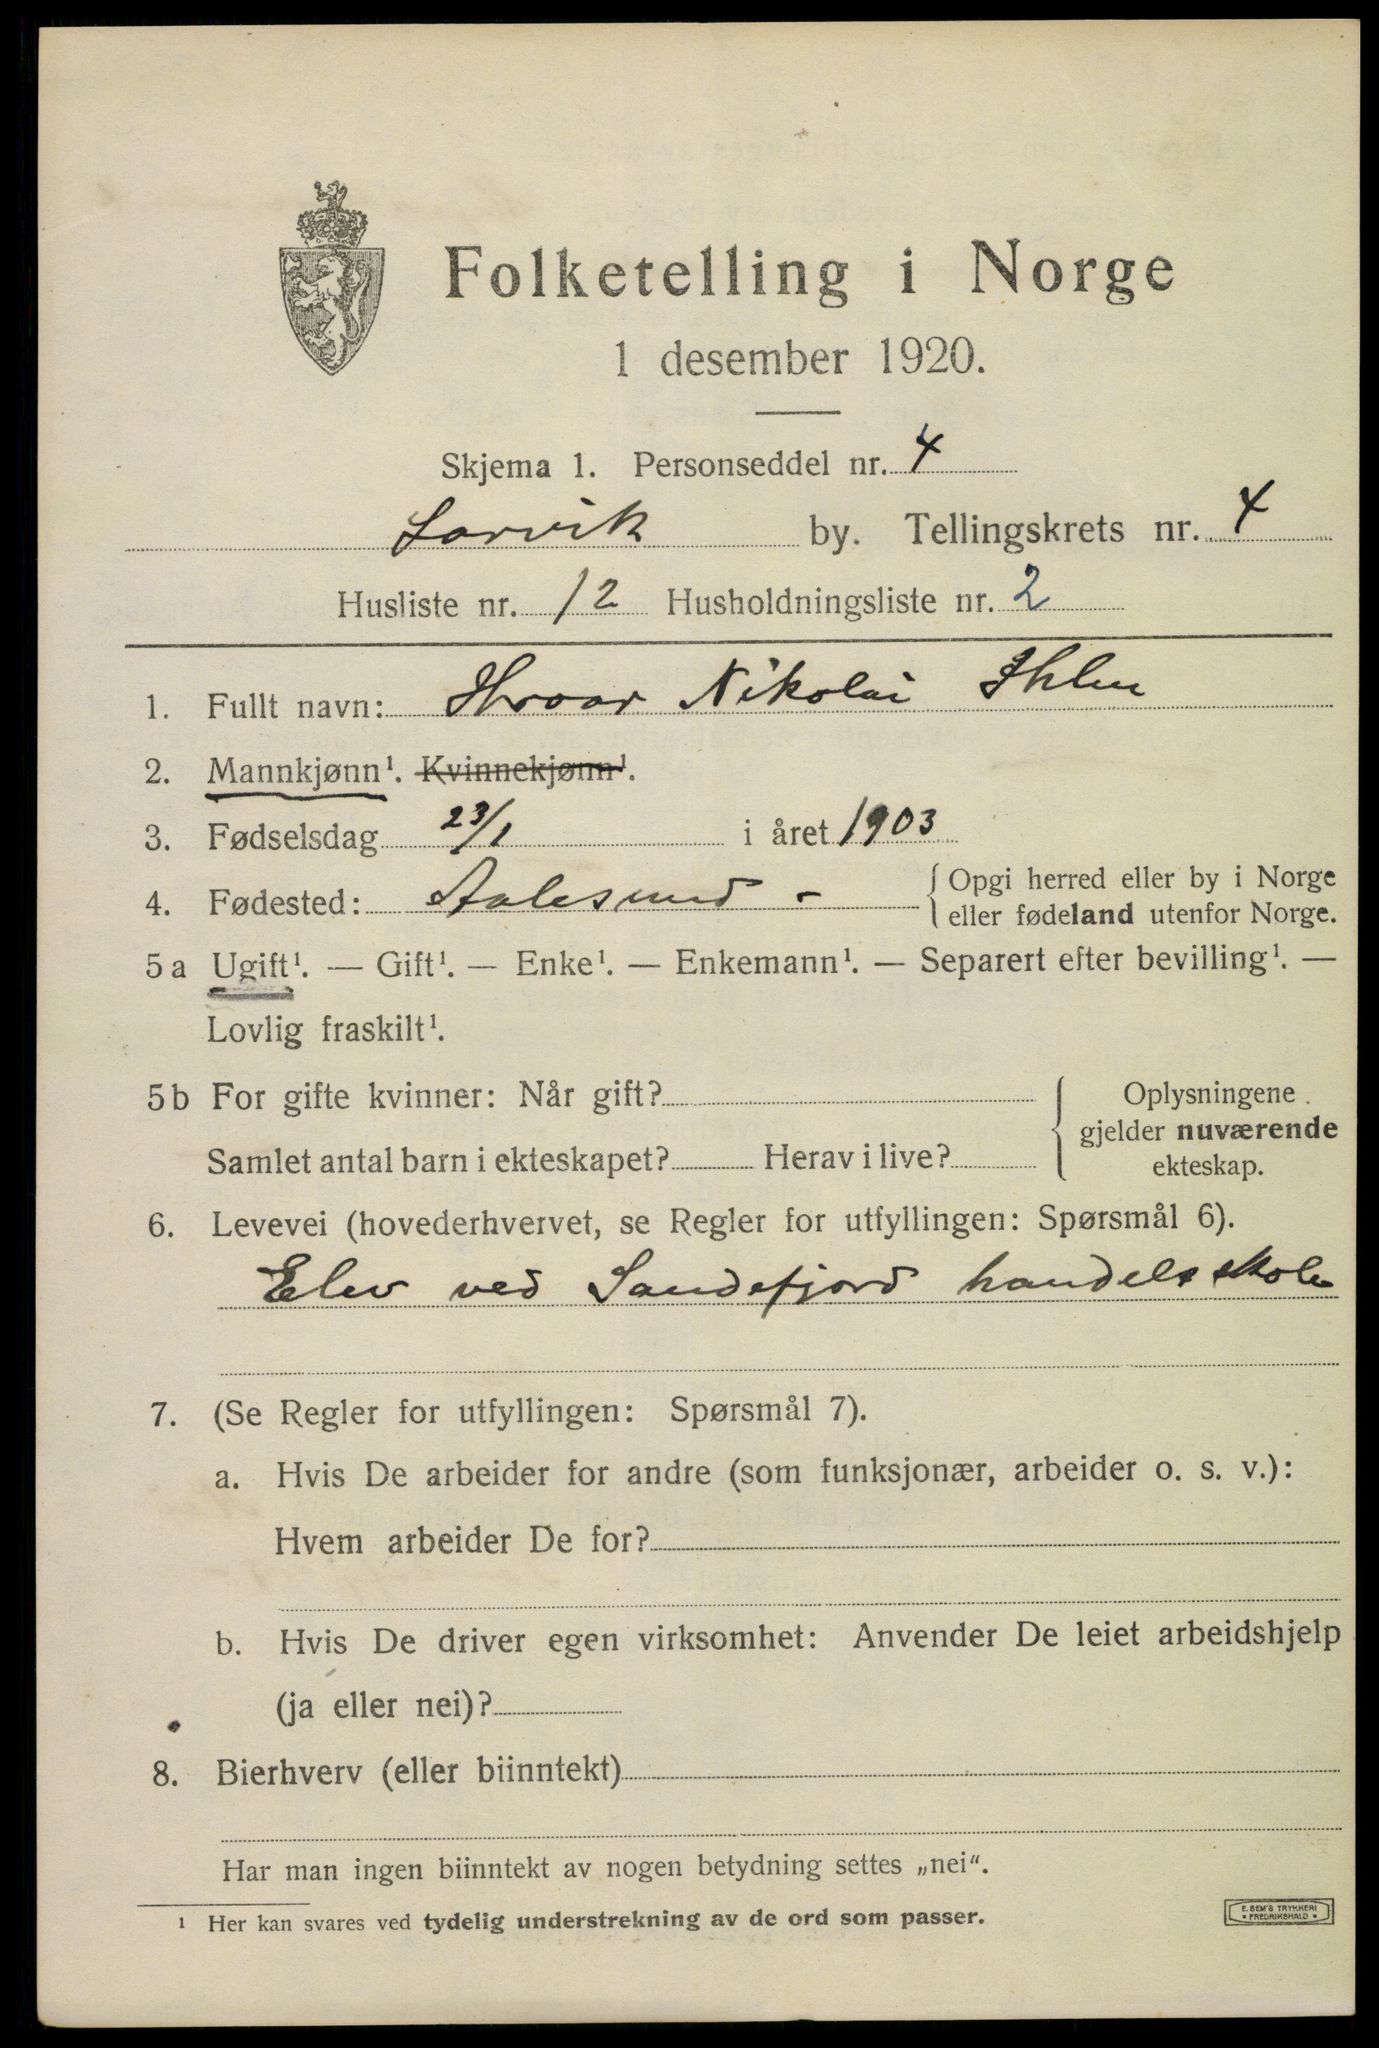 Folketelling i Norge
1 desember 1920.
Skjema 1. Personseddel nr. 4
Larvik by. Tellingskrets nr. 4
Husliste nr. 12 Husholdningsliste nr. 2
1. Fullt navn: Hroar Nikolai Ihlen
2. Mannkjønn¹. Kvinnekjønn¹.
3. Fødselsdag 23/1 i året 1903
4. Fødested: Aalesund - { Opgi herred eller by i Norge
eller fødeland utenfor Norge.
5a Ugift¹. — Gift¹. — Enke¹. — Enkemann¹. — Separert efter bevilling¹. —
Lovlig fraskilt¹.
5b For gifte kvinner: Når gift? { Oplysningene
gjelder nuværende
Samlet antal barn i ekteskapet? Herav i live?
ekteskap.
6. Levevei (hovederhvervet, se Regler for utfyllingen: Spørsmål 6).
Elev ved Sandefjord handelsskole
7. (Se Regler for utfyllingen: Spørsmål 7).
a. Hvis De arbeider for andre (som funksjonær, arbeider o. s. v.):
Hvem arbeider De for?
b. Hvis De driver egen virksomhet: Anvender De leiet arbeidshjelp
(ja eller nei)?
8. Bierhverv (eller biinntekt)
Har man ingen biinntekt av nogen betydning settes „nei“.
¹ Her kan svares ved tydelig understrekning av de ord som passer.
E. SEM'S TRYKKERI
• FREDRIKSHALD •